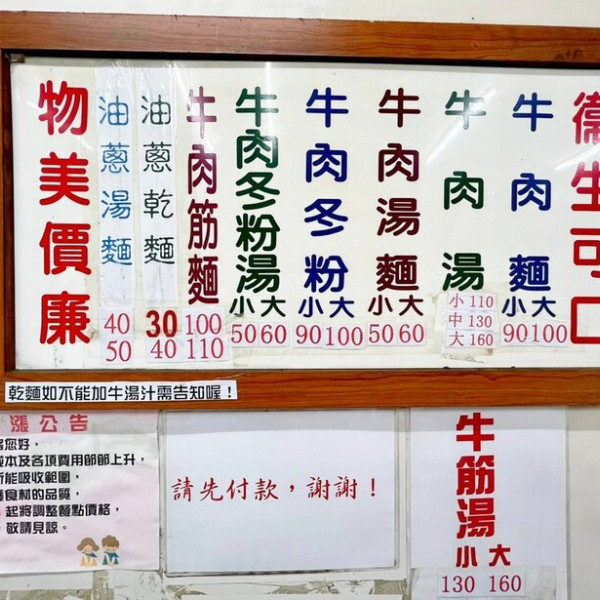 衛生可口
牛肉麵
小大
90 100
牛肉湯
小 110
中 130
大 160
牛肉湯麵
小大
50 60
牛肉冬粉
小大
90 100
牛肉冬粉湯
小大
50 60
牛肉筋麵
100
110
油蔥乾麵
30
40
油蔥湯麵
40
50
物美價廉
乾麵如不能加牛湯汁需告知喔！
漲公告
您好，
本及各項費用節節上升，
能吸收範圍，
食材的品質，
起將調整餐點價格，
敬請見諒。
請先付款，謝謝！
牛筋湯
小大
130 160